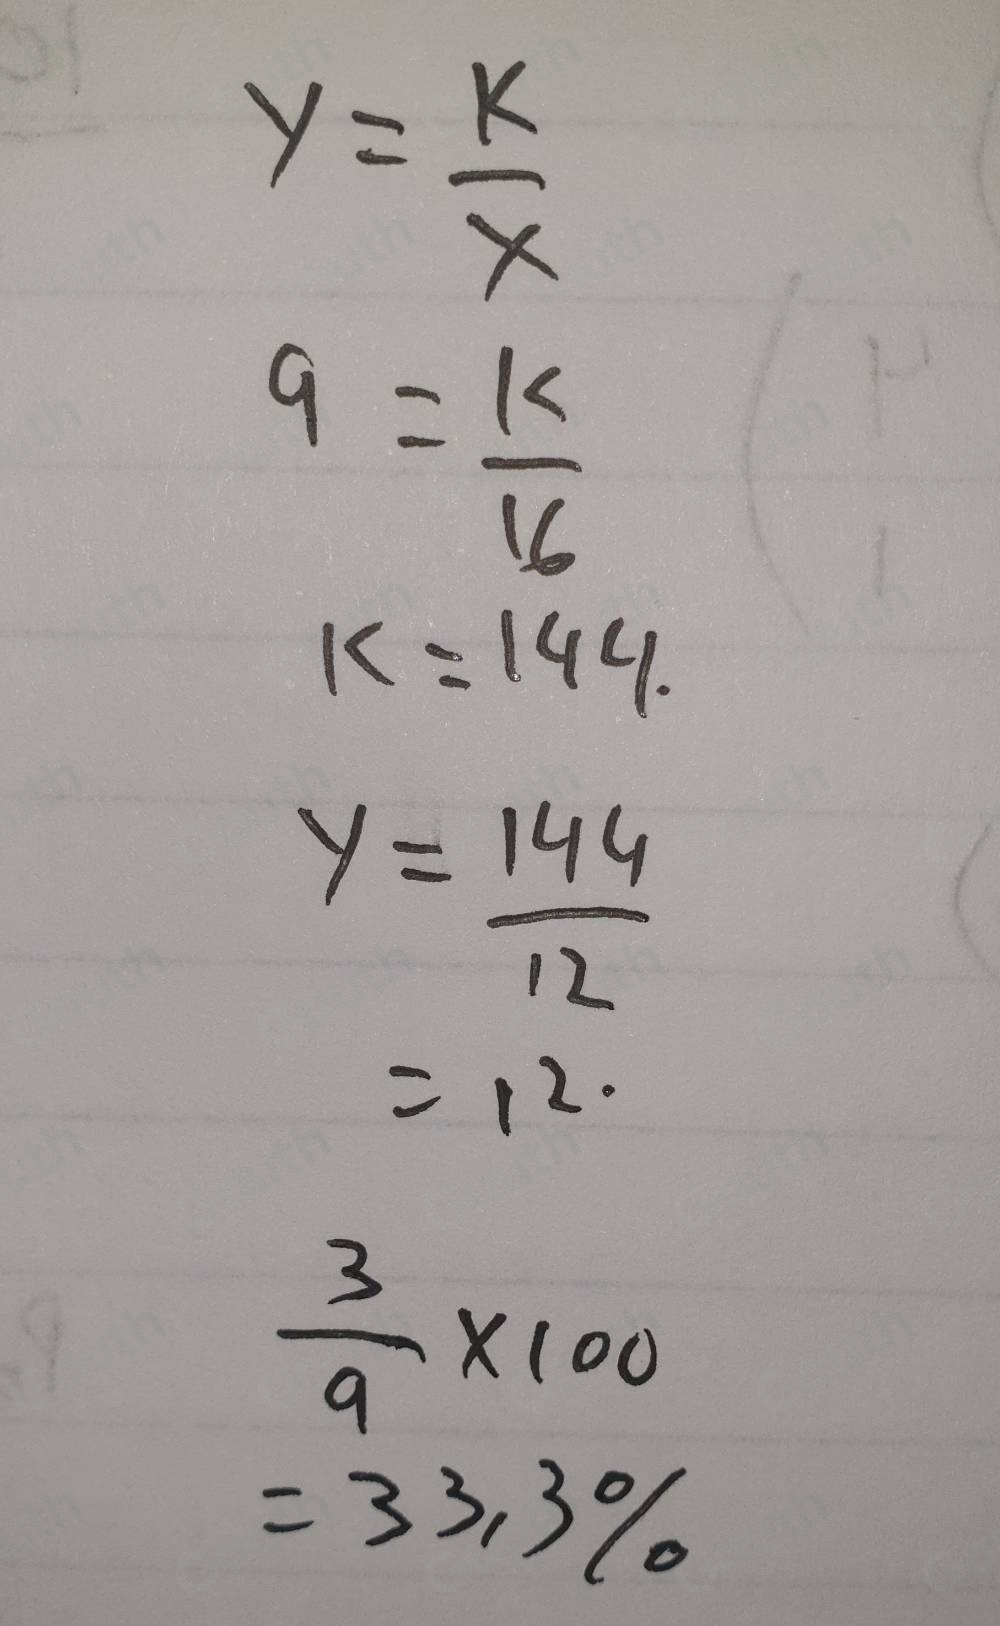 Y = K
X
9 = K
16
K = 144.
Y = 144
12
= 12.
3
9 × 100
= 33,3%